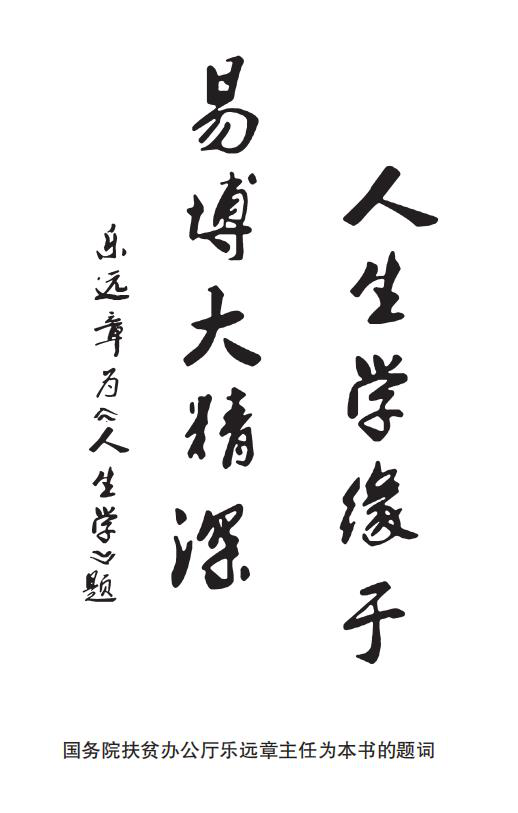 人生学缘于
易博大精深
乐远章为《人生学》题
国务院扶贫办公厅乐远章主任为本书的题词